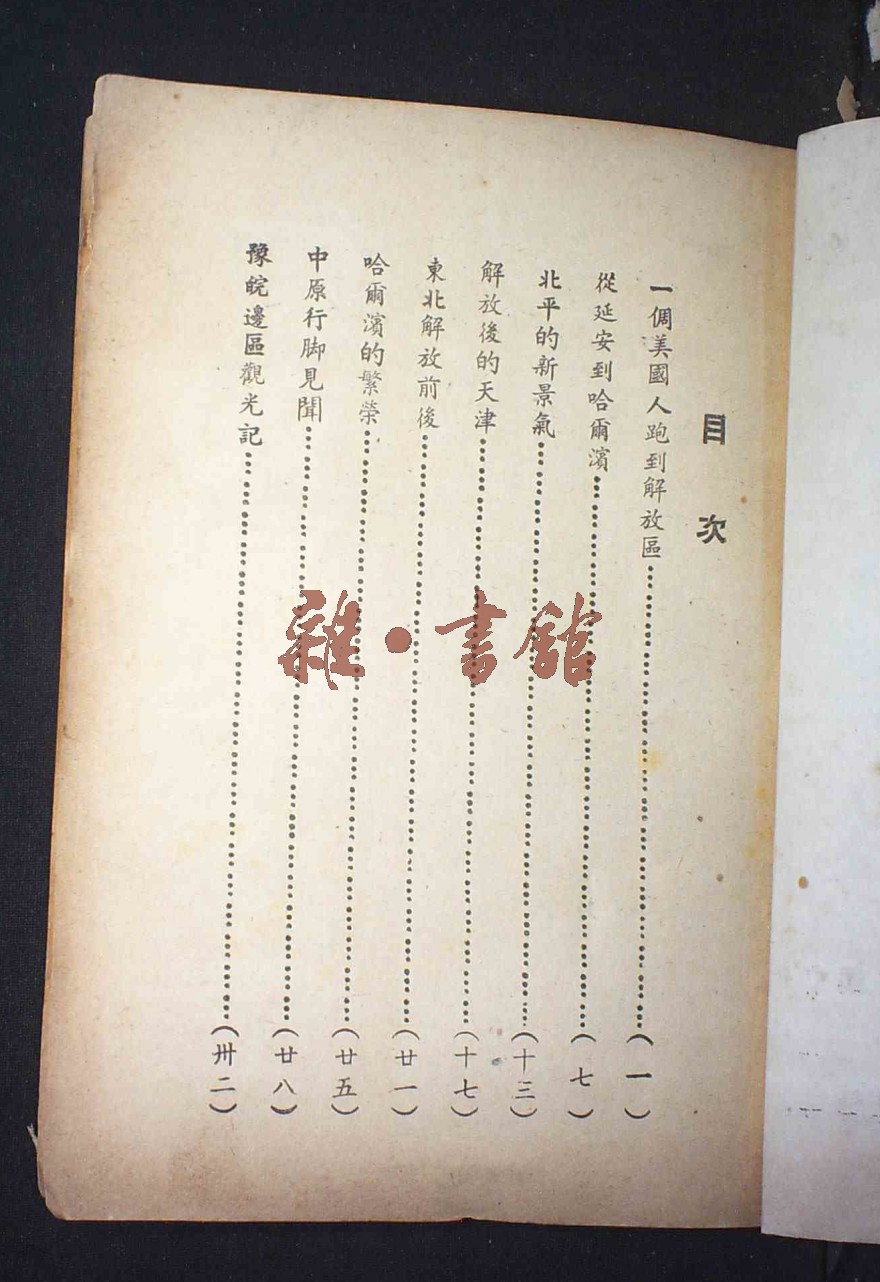 目次
一個美國人跑到解放區……(一)
從延安到哈爾濱……(七)
北平的新景氣……(十三)
解放後的天津……(十七)
東北解放前後……(廿一)
哈爾濱的繁榮……(廿五)
中原行脚見聞……(廿八)
豫皖邊區觀光記……(卅二)
雜·書館